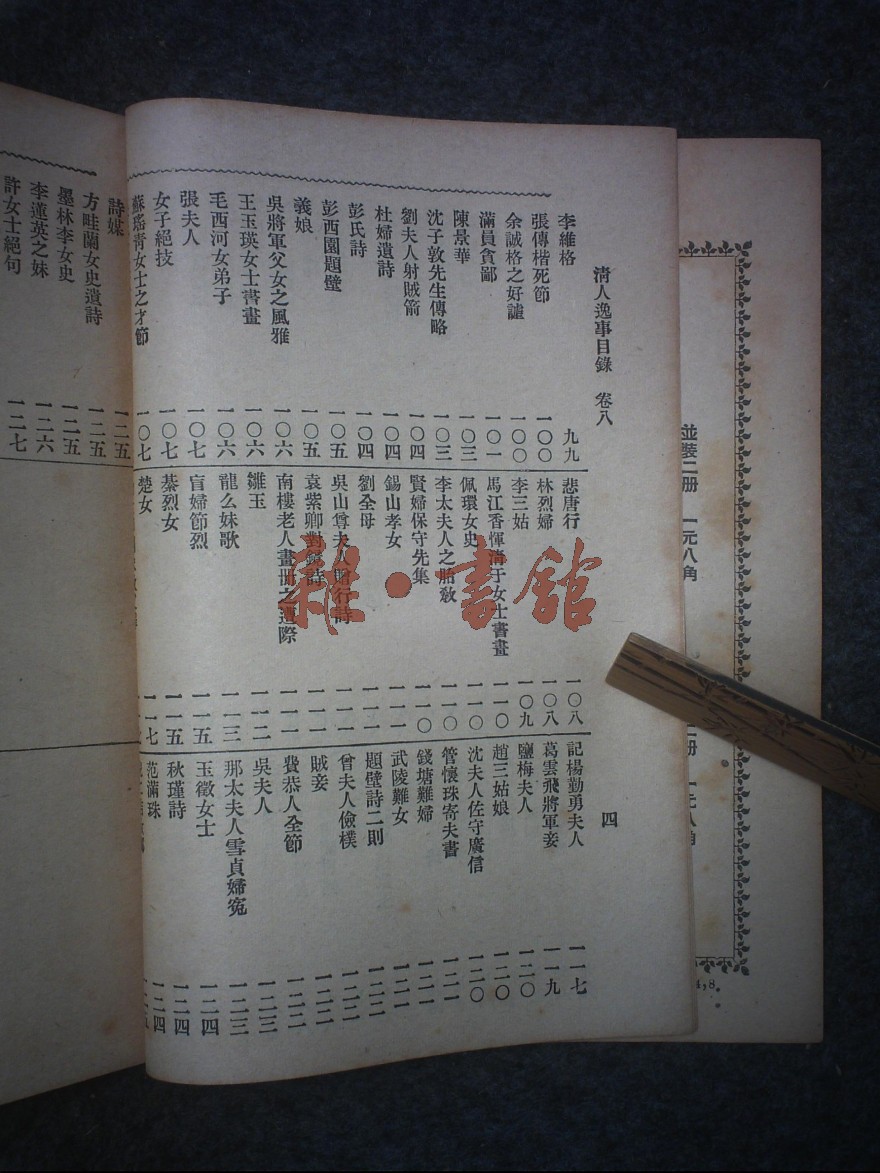 清人逸事目錄 卷八
四
李維格 九九
張傳楷死節 一〇〇
余誠格之好謔 一〇〇
滿員貪鄙 一〇一
陳景華 一〇三
沈子敦先生傳略 一〇三
劉夫人射賊箭 一〇四
杜婦遺詩 一〇四
彭氏詩 一〇四
彭西園題壁 一〇五
義娘 一〇五
吳將軍父女之風雅 一〇六
王玉瑛女士書畫 一〇六
毛西河女弟子 一〇六
張夫人 一〇七
女子絕技 一〇七
蘇瑤青女士之才節 一〇七
悲唐行 一〇八
林烈婦 一〇八
李三姑 一〇九
馬江香惲清于女士書畫 一一〇
佩環女史 一一〇
李太夫人之胎教 一一〇
賢婦保守先集 一一〇
錫山孝女 一一一
劉全母 一一一
吳山尊夫人贈行詩 一一一
袁紫卿對鏡詩 一一一
南樓老人畫冊之遭際 一一一
雛玉 一一二
龍么妹歌 一一三
盲婦節烈 一一五
蓁烈女 一一五
楚女 一一七
記楊勤勇夫人 一一七
葛雲飛將軍妾 一一九
鹽梅夫人 一二〇
趙三姑娘 一二〇
沈夫人佐守廣信 一二〇
管懷珠寄夫書 一二一
錢塘難婦 一二一
武陵難女 一二二
題壁詩二則 一二二
曾夫人儉樸 一二二
賊妾 一二二
費恭人全節 一二二
吳夫人 一二三
那太夫人雪貞婦冤 一二三
玉徵女士 一二四
秋瑾詩 一二四
范滿珠 一二四
詩媒 一二五
方畦蘭女史遺詩 一二五
墨林李女史 一二五
李蓮英之妹 一二六
許女士絕句 一二七
並裝二册 一元八角
册 一元八角
4,8.
雜·書館